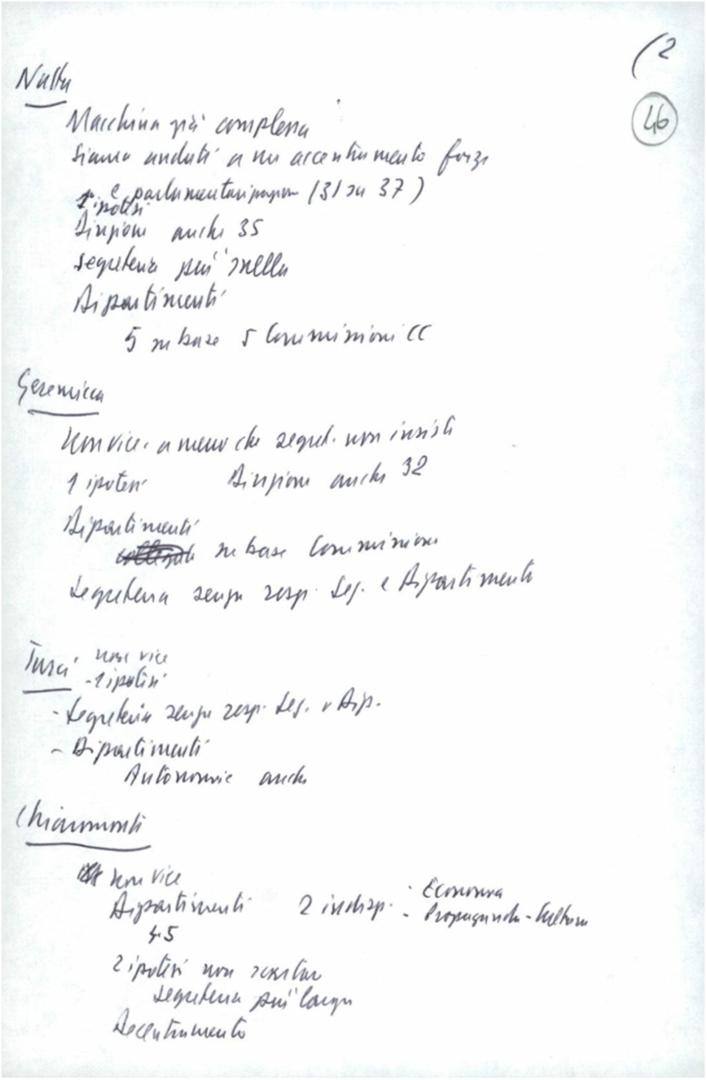 (2
46
Natta
Macchina più complessa
Siamo andati a un accentramento forze
e parlamentari (31 su 37)
1 ipotesi
Direzione anche 35
Segreteria più snella
Dipartimenti
5 su base 5 Commissioni CC
Geremicca
Non vice. a meno che segret. non insisti
1 ipotesi Direzione anche 32
Dipartimenti
su base Commissioni
Segreteria senza resp. Seg. e Dipartimento
Turci non vice
- 1 ipotesi
- Segreteria senza resp. Seg. o Dip.
- Dipartimenti
Autonomie anche
Chiaromonte
non vice
Dipartimenti 2 indisp. - Economia
- Propaganda - Cultura
4.5
2 ipotesi non
Segreteria più larga
Decentramento